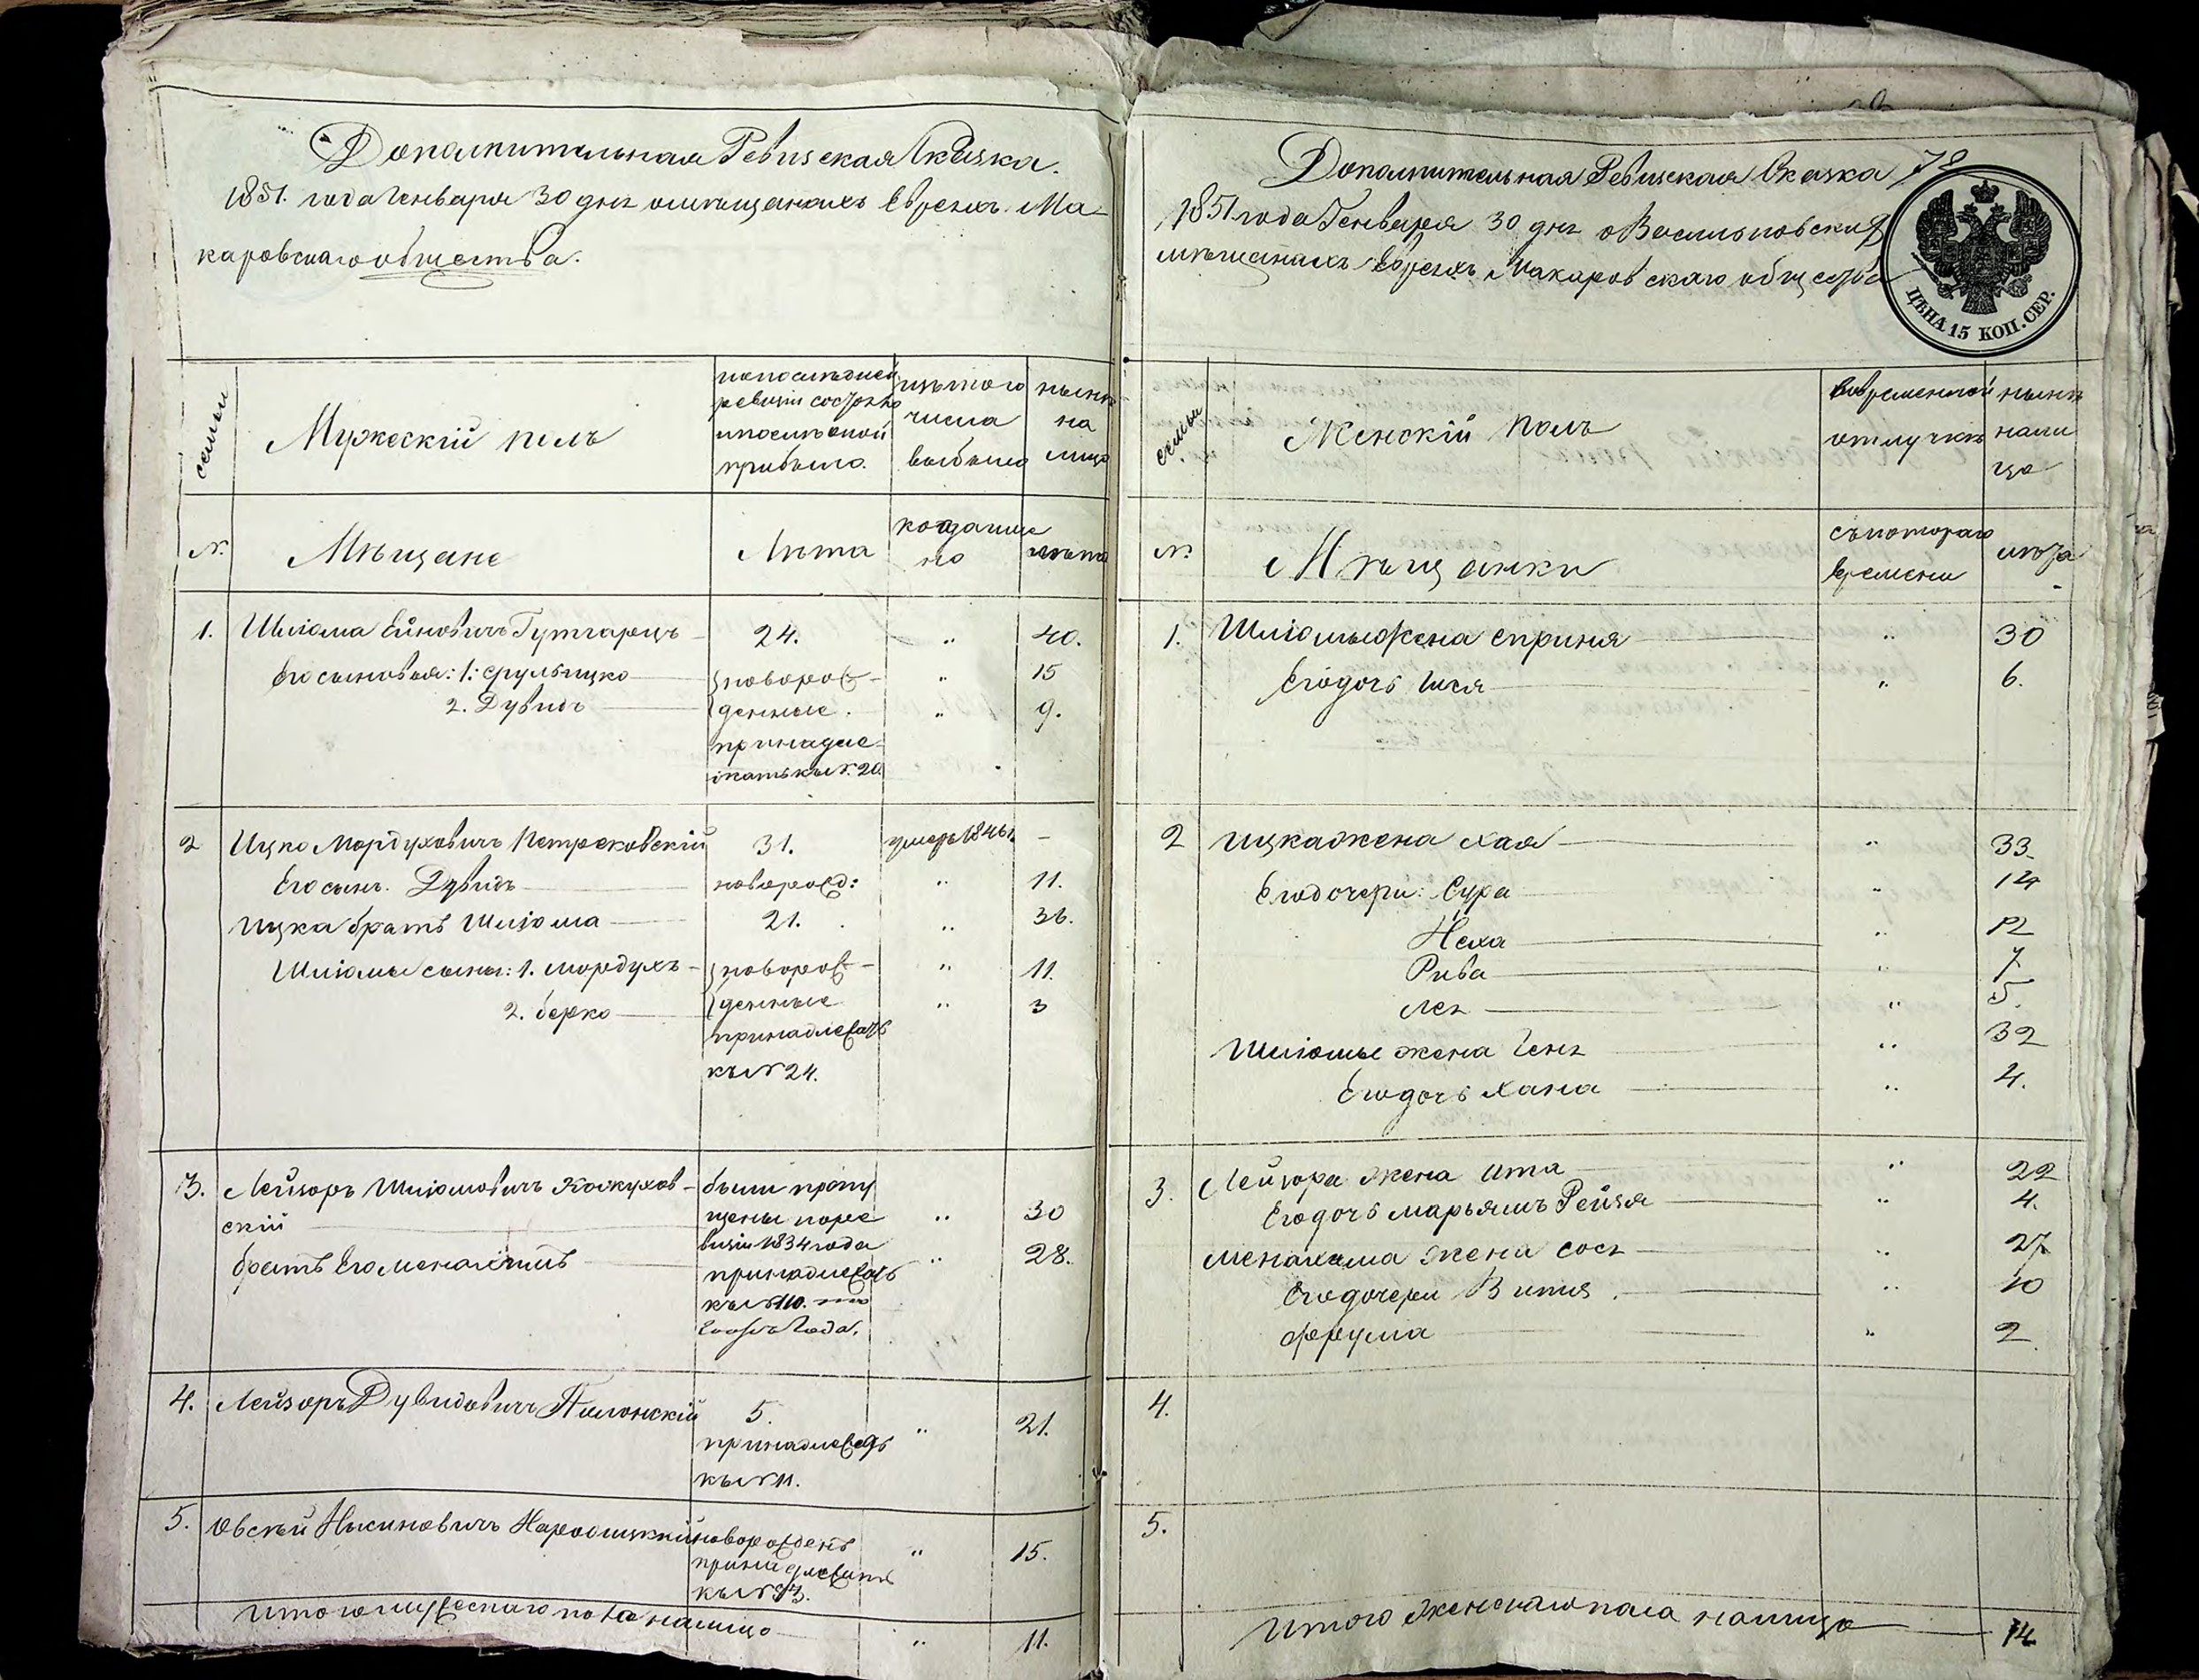 Дополнительная Ревизская Сказка.
1851. года Генваря 30 дня о мѣщанахъ Евреяхъ Ма-
каровскаго общества.
семьи
Мужескій полъ
по послѣдней
ревизіи состояло
и послѣ оной
прибыло.
изъ того
числа
выбыло
нынѣ
на
лицо
№
Мѣщане
Лѣта
когда имен
но
лѣта
1. Шліома Ейновичъ Гутгарцъ 24. " 40.
Его сыновья: 1: Срульицко новорож- " 15
2. Дувидъ денные. " 9.
принадле-
жатъ къ № 20.
2 Ицко Мордуховичъ Петрековскій 31. умеръ 1846 г. -
Его сынъ. Дувидъ новорожд: " 11.
Ицка братъ Шліома 21. " 36.
Шліомы сыны: 1. Мордухъ новорож- " 11.
2. Берко денные " 3
принадлежатъ
къ № 24.
3. Лейзоръ Шліомовичъ были пропу
скій щены по ре " 30
визіи 1834 года
братъ Его Менахимъ принадлежатъ " 28.
къ № 110.
4. Лейзоръ Дувидовичъ 5. " 21.
принадлежитъ
къ № 11.
5. Овсѣй Нысиновичъ Народицкій новорожденъ " 15.
принадлежитъ
къ №
Итого мужескаго пола налицо " 11.
78
Дополнительная Ревизская Сказка
1851 года Генваря 30 дня о Васильковскихъ
мѣщанахъ Евреяхъ Макаровскаго общества
ЦѢНА 15 КОП. СЕР.
семьи
Женскій полъ
во временной
отлучкѣ
нынѣ
нали
цо
№
Мѣщанки
съ котораго
времени
лѣта
1. Шліомы жена Сприня " 30
Его дочь " 6.
2 Ицка жена Хая " 33
Его дочери: Сура " 14
Неха " 12
Рива " 7
Лея " 5.
Шліомы жена Геня " 32
Его дочь Хана " 4.
3. Лейзора жена Ита " 22
Его дочь Марьямъ Рейзя " 4.
Менахима жена Сося " 27
Его дочери Витя " 10
Фрума " 2
4.
5.
Итого женскаго пола налицо 14